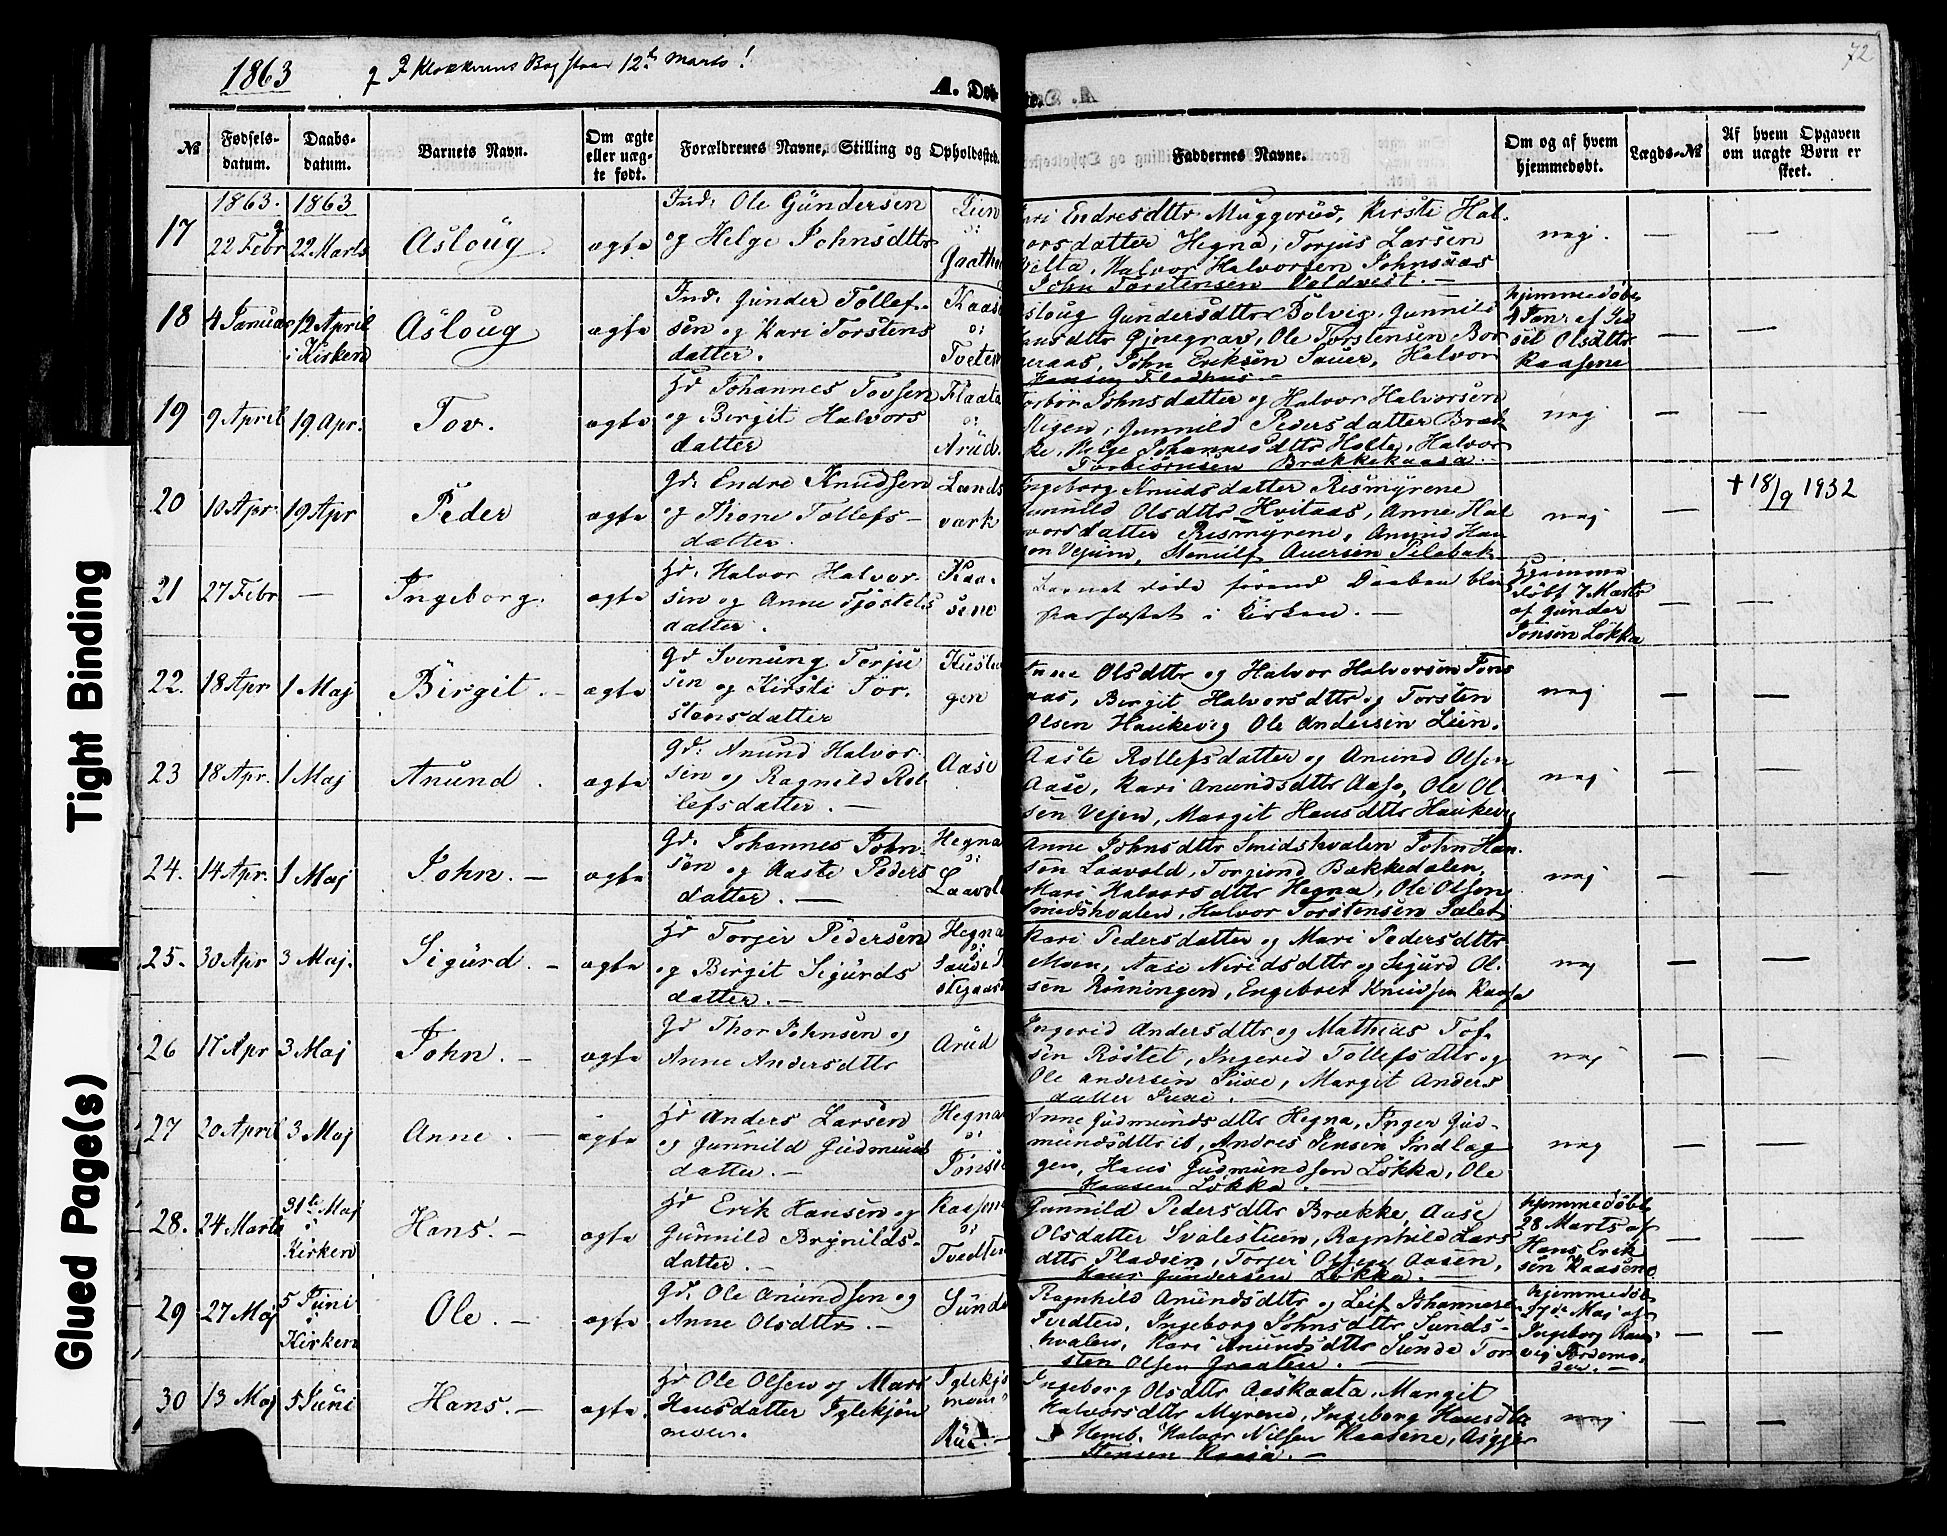 1863
I Klokkerens Bog staar 12te Marts!
72
A. Dø-
te.
№
Fødsels-
datum.
Daabs-
datum.
Barnets Navn.
Om ægte
eller uæg-
te født.
Forældrenes Navne, Stilling og Opholdssted.
Faddernes Navne.
Om og af hvem
hjemmedøbt.
Lægds-№
Af hvem Opgaven
om uægte Børn er
skeet.
1863. 1863
17 22 Febr 22 Marts Asloug. ægte
Ind: Ole Gundersen
og Helge Johnsdttr
Lien
Endresdttr Muggerud, Kirste Hal-
vorsdatter Hegna, Torjus Larsen
Halvor Halvorsen Johnsaas
John Torstensen Voldvest. —
nej. — —
18 4 Januar 12 April
i Kirken
Asloug ægte
Ind: Gunder Tollef-
sen og Kari Torstens
datter.
Kaase
Tveten
Gundersdttr Bolvig, Gunnild
Hansdttr Øjnegrav, Ole Torstensen Bor
John Eriksen Sauer, Halvor
Hansen Fladhus. —
hjemmedøbt
4 Jan: af Sid
sel Olsdttr
Kaasene
— —
19 9 April 19 Apr. Tov. ægte
Hd Johannes Tovsen
og Birgit Halvors
datter
Flaata
Arud.
Johnsdatter og Halvor Halvorsen
Stigen, Gunnild Pedersdatter Bræk
ke, Helge Johannesdttr Holte, Halvor
Torbiørnsen Brækkekaasa.
nej — —
20 10 Apr. 19 Apr Peder ægte
Gd: Endre Knudsen
og Thone Tollefs-
datter.
Lands
værk
Ingeborg Knudsdatter Resmyrene
Gunnild Olsdttr Hvitaas, Anne Hal
vorsdatter Resmyrene, Anund Han
sen Vejum,
nej — + 18/9 1932
21 27 Febr — Ingeborg. ægte
Hd: Halvor Halvor-
sen og Anne Tjøstels
datter.
Kaa-
sene
Barnet døde førend Daaben blev
i Kirken. —
Hjemme
døbt 7 Marts
af Gunder
Jonsen Løkka
— —
22. 18 Apr 1 Maj Birgit. — ægte
Gd Svenung Torju
sen og Kirsti Tor-
stensdatter
Anne Olsdttr og Halvor Halvorsen Jons
aas, Birgit Halvorsdttr og Torsten
Olsen Haukevig Ole Andersen Lien.
nej — —
23 18 Apr. 1 Maj Anund. ægte
Gd: Anund Halvor-
sen og Ragnild Rol
lefsdatter. —
Aase
Aaste Rollefsdatter og Anund Olsen
Aase, Kari Anundsdttr Aase, Ole Ol-
sen Vejen, Margit Hansdttr Haukevig
nej — —
24. 14 Apr. 1 Maj John. — ægte
Gd: Johannes John-
sen og Aaste Peders
datter. —
Hegna
Laavold
Anne Johnsdttr Smidshvalen John Han-
sen Laavold, Torgiond Bakkedalen,
Mari Halvorsdttr Hegna, Ole Olsen
Smidshvalen, Halvor Torstensen
nej — —
25. 30 Apr 3 Maj. Sigurd. — ægte
Hd Torjer Pedersen
og Birgit Sigurds
datter. —
Hegna
Kari Pedersdatter og Mari Pedersdttr
Moen, Aase Neridsdttr og Sigurd Ol-
sen Rønningen, Engebret Knudsen Kaasa
nej — —
26 17 Apr 3 Maj John. — ægte
Gd Thor Johnsen og
Anne Andersdttr
Arud
Ingerid Andersdttr og Mathias Tof-
sen Røstet, Ingerid Tollefsdttr og
Ole Andersen Juve, Margit Anders
datter Juve. —
nej — —
27 20 April 3 Maj Anne. — ægte
Hd Anders Larsen
og Gunnild Gudmunds
datter. —
Hegna
Anne Gudmundsdttr Hegna, Inger Gud-
mundsdttr ib, Andres Jensen Indlæg
gen, Hans Gudmundsen Løkka, Ole
Hansen Løkka. —
nej — —
28. 24 Marts 31te Maj
i
Kirken
Hans. — ægte
Hd Erik Hansen og
Gunnild Brynilds-
datter. —
Kaasene
Tvedten
Gunnild Pedersdttr Brække, Aase
Olsdatter Svalestuen, Ragnhild Lars
dttr Pladsen, Torjer Olsen Aasen,
Hans Gundersen Løkka. —
hjemmedøbt
28 Marts af
Hans Erik
sen Kaasene
— —
29 27 Maj 5 Juni
i
Kirken
Ole. — ægte
Gd: Ole Anundsen og
Anne Olsdttr. —
Sunde
Ragnhild Anundsdttr og Leif Johannesen
Tvedten, Ingeborg Johnsdttr Sunds-
hvalen, Kari Anundsdttr Sunde Tor
sten Olsen Graaten. —
hjemmedøbt
27de Maj af
Ingeborg
Jordemo-
der. —
— —
30 13 Maj 5 Juni Hans. — ægte.
Hd Ole Olsen og Mari
Hansdatter Iglekjøn
moen.
Iglekjøn
moen
Ingeborg Olsdttr Aaskaata, Margit
Halvorsdttr Myrene, Ingeborg Hansdttr
Nemb. Halvor Nilsen Kaasene, Asgjer
Stensen Kaasa. —
nej — —
Tight Binding
Glued Page(s)